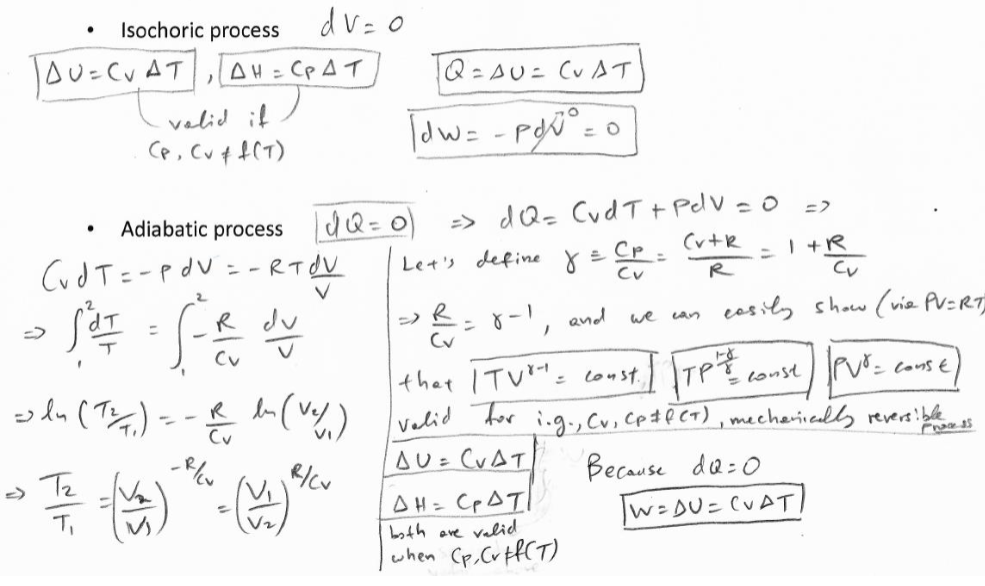 • Isochoric process dV = 0
ΔU = Cv ΔT , ΔH = Cp ΔT Q = ΔU = Cv ΔT
valid if
Cp, Cv ≠ f(T)
dW = - PdV⁰ = 0
• Adiabatic process dQ = 0 => dQ = CvdT + PdV = 0 =>
CvdT = -P dV = -RT dV/V
=> ∫₁² dT/T = ∫₁² - R/Cv dV/V
=> ln (T2/T1) = - R/Cv ln (V2/V1)
=> T2/T1 = (V2/V1)^(-R/Cv) = (V1/V2)^(R/Cv)
Let's define γ ≡ Cp/Cv = (Cv+R)/R = 1 + R/Cv
=> R/Cv = γ-1, and we can easily show (via PV=RT)
that TV^(γ-1) = const. TP^((1-γ)/γ) = const PV^γ = const
valid for i.g., Cv, Cp ≠ f(T), mechanically reversible process
ΔU = CvΔT
ΔH = CpΔT
both are valid
when Cp, Cv ≠ f(T)
Because dQ = 0
W = ΔU = CvΔT